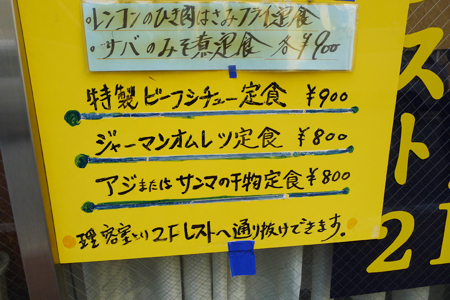 ・レンコンのひき肉はさみフライ定食
・サバのみそ煮定食 各¥900
特製ビーフシチュー定食 ¥900
ジャーマンオムレツ定食 ¥800
アジまたはサンマの干物定食 ¥800
理容室より2Fレストへ通り抜けできます。
スト
2F